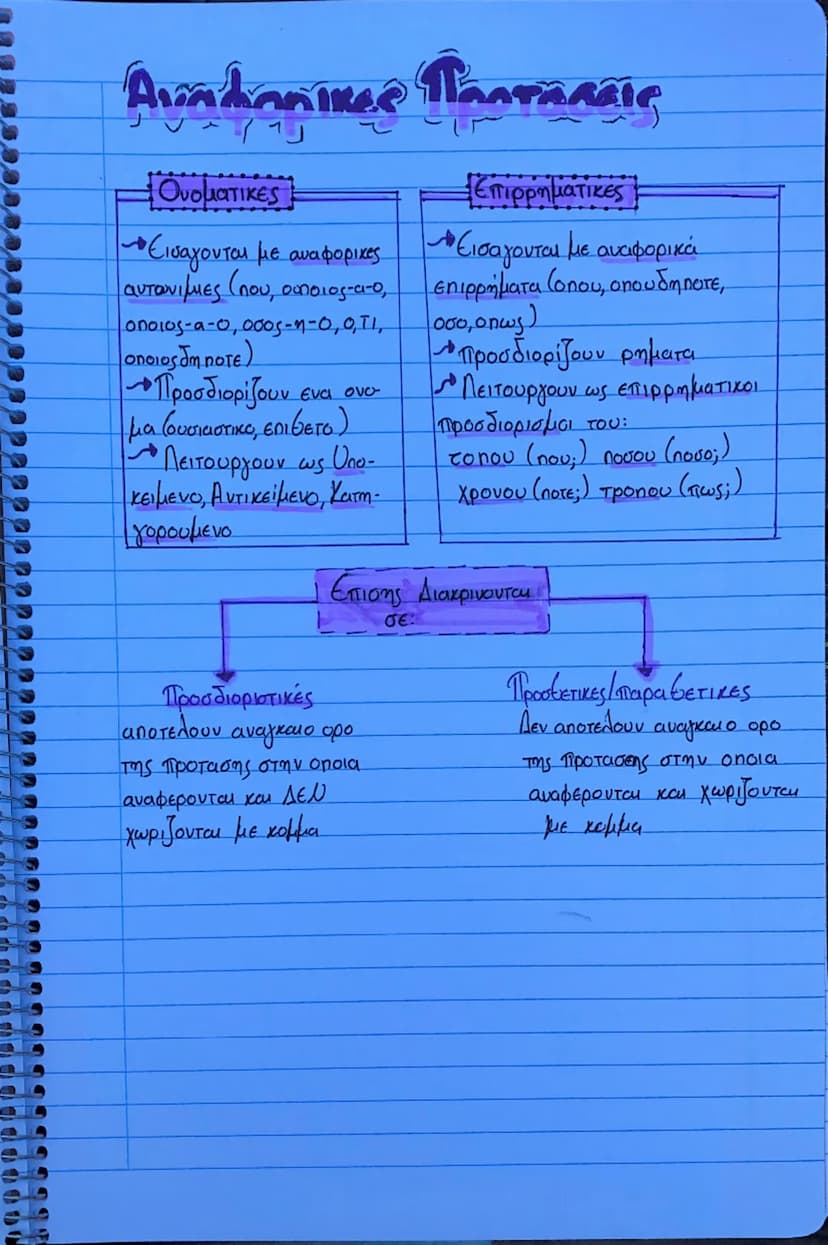 Αναφορικες Προτασεις
Ονοματικες
→Εισαγονται με αναφορικες
αυτονιμες (που, οοποιος-α-ο,
οποιος-α-ο, οσος-η-ο, ο,τι,
οποιοςδηποτε)
→Προσδιοριζουν ενα ονο-
μα (ουσιαστικο, επιθετο)
→ Λειτουργουν ως Υπο-
κειμενο, Αντικείμενο, Κατη-
γορουμενο
Επιρρηματικες
→Εισαγονται με αναφορικά
επιρρήματα (οπου, οπουδηποτε,
οσο, οπως)
→Προσδιορίζουν ρηματα
→ Λειτουργουν ως επιρρηματικοι
προσδιορισμοι του:
τοπου (που;) ποσου (ποσο;)
χρονου (ποτε;) τροπου (πως;)
Επισης Διακρινονται
σε:
Προσδιοριστικές
αποτελουν αναγκαιο ορο
της προτασης στην οποια
αναφερονται και ΔΕΝ
χωριζονται με κομμα
Προσθετικες/παραθετικες
Δεν αποτελουν αναγκαιο ορο
της προτασης στην οποια
αναφερονται και χωριζονται
με κομμα